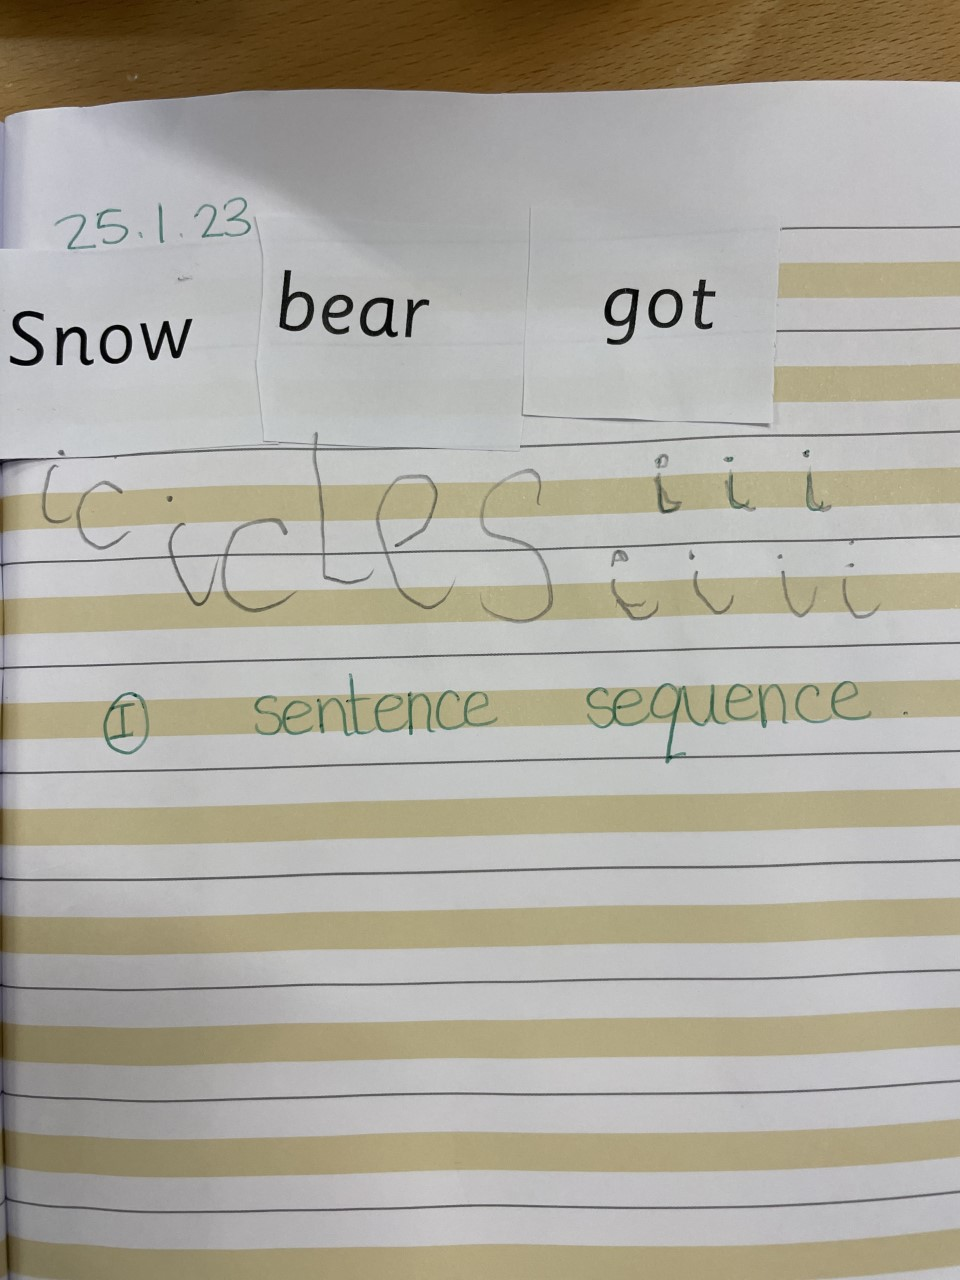 25.1.23
Snow bear got
icicles i i i
i i i i
I sentence sequence.